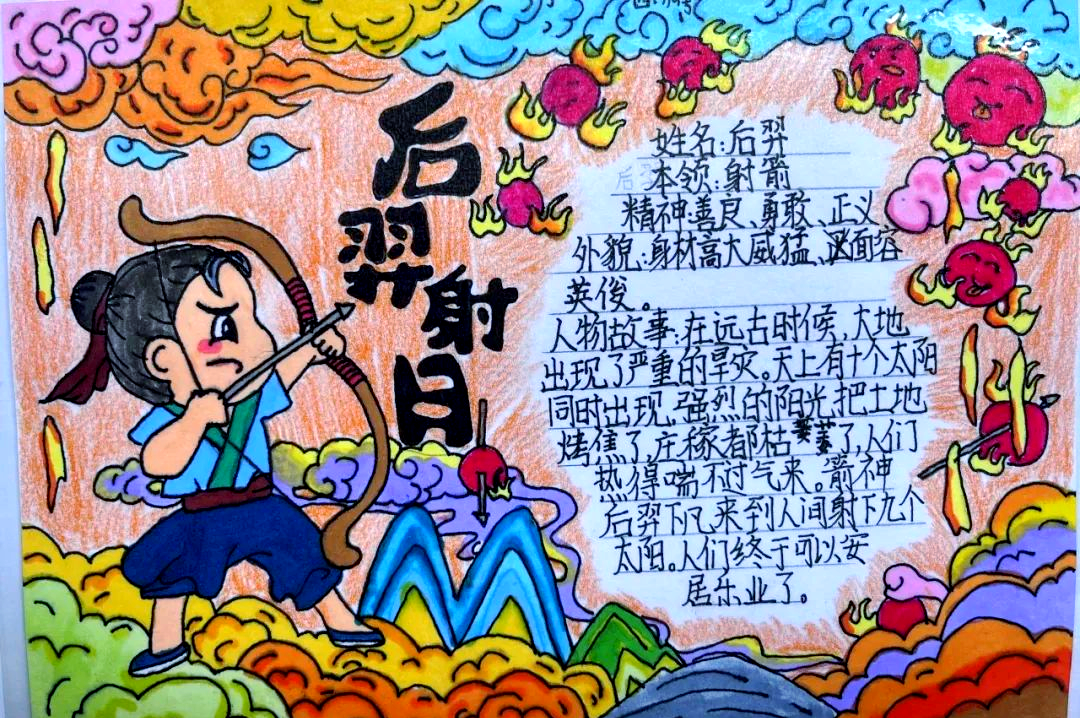 后
羿
射
日
姓名:后羿
本领:射箭
精神善良、勇敢、正义
外貌:身材高大威猛、面容
英俊。
人物故事:在远古时候,大地
出现了严重的旱灾。天上有十个太阳
同时出现,强烈的阳光把土地
烤焦了,庄稼都枯萎了,人们
热得喘不过气来。箭神
后羿下凡来到人间射下九个
太阳。人们终于可以安
居乐业了。